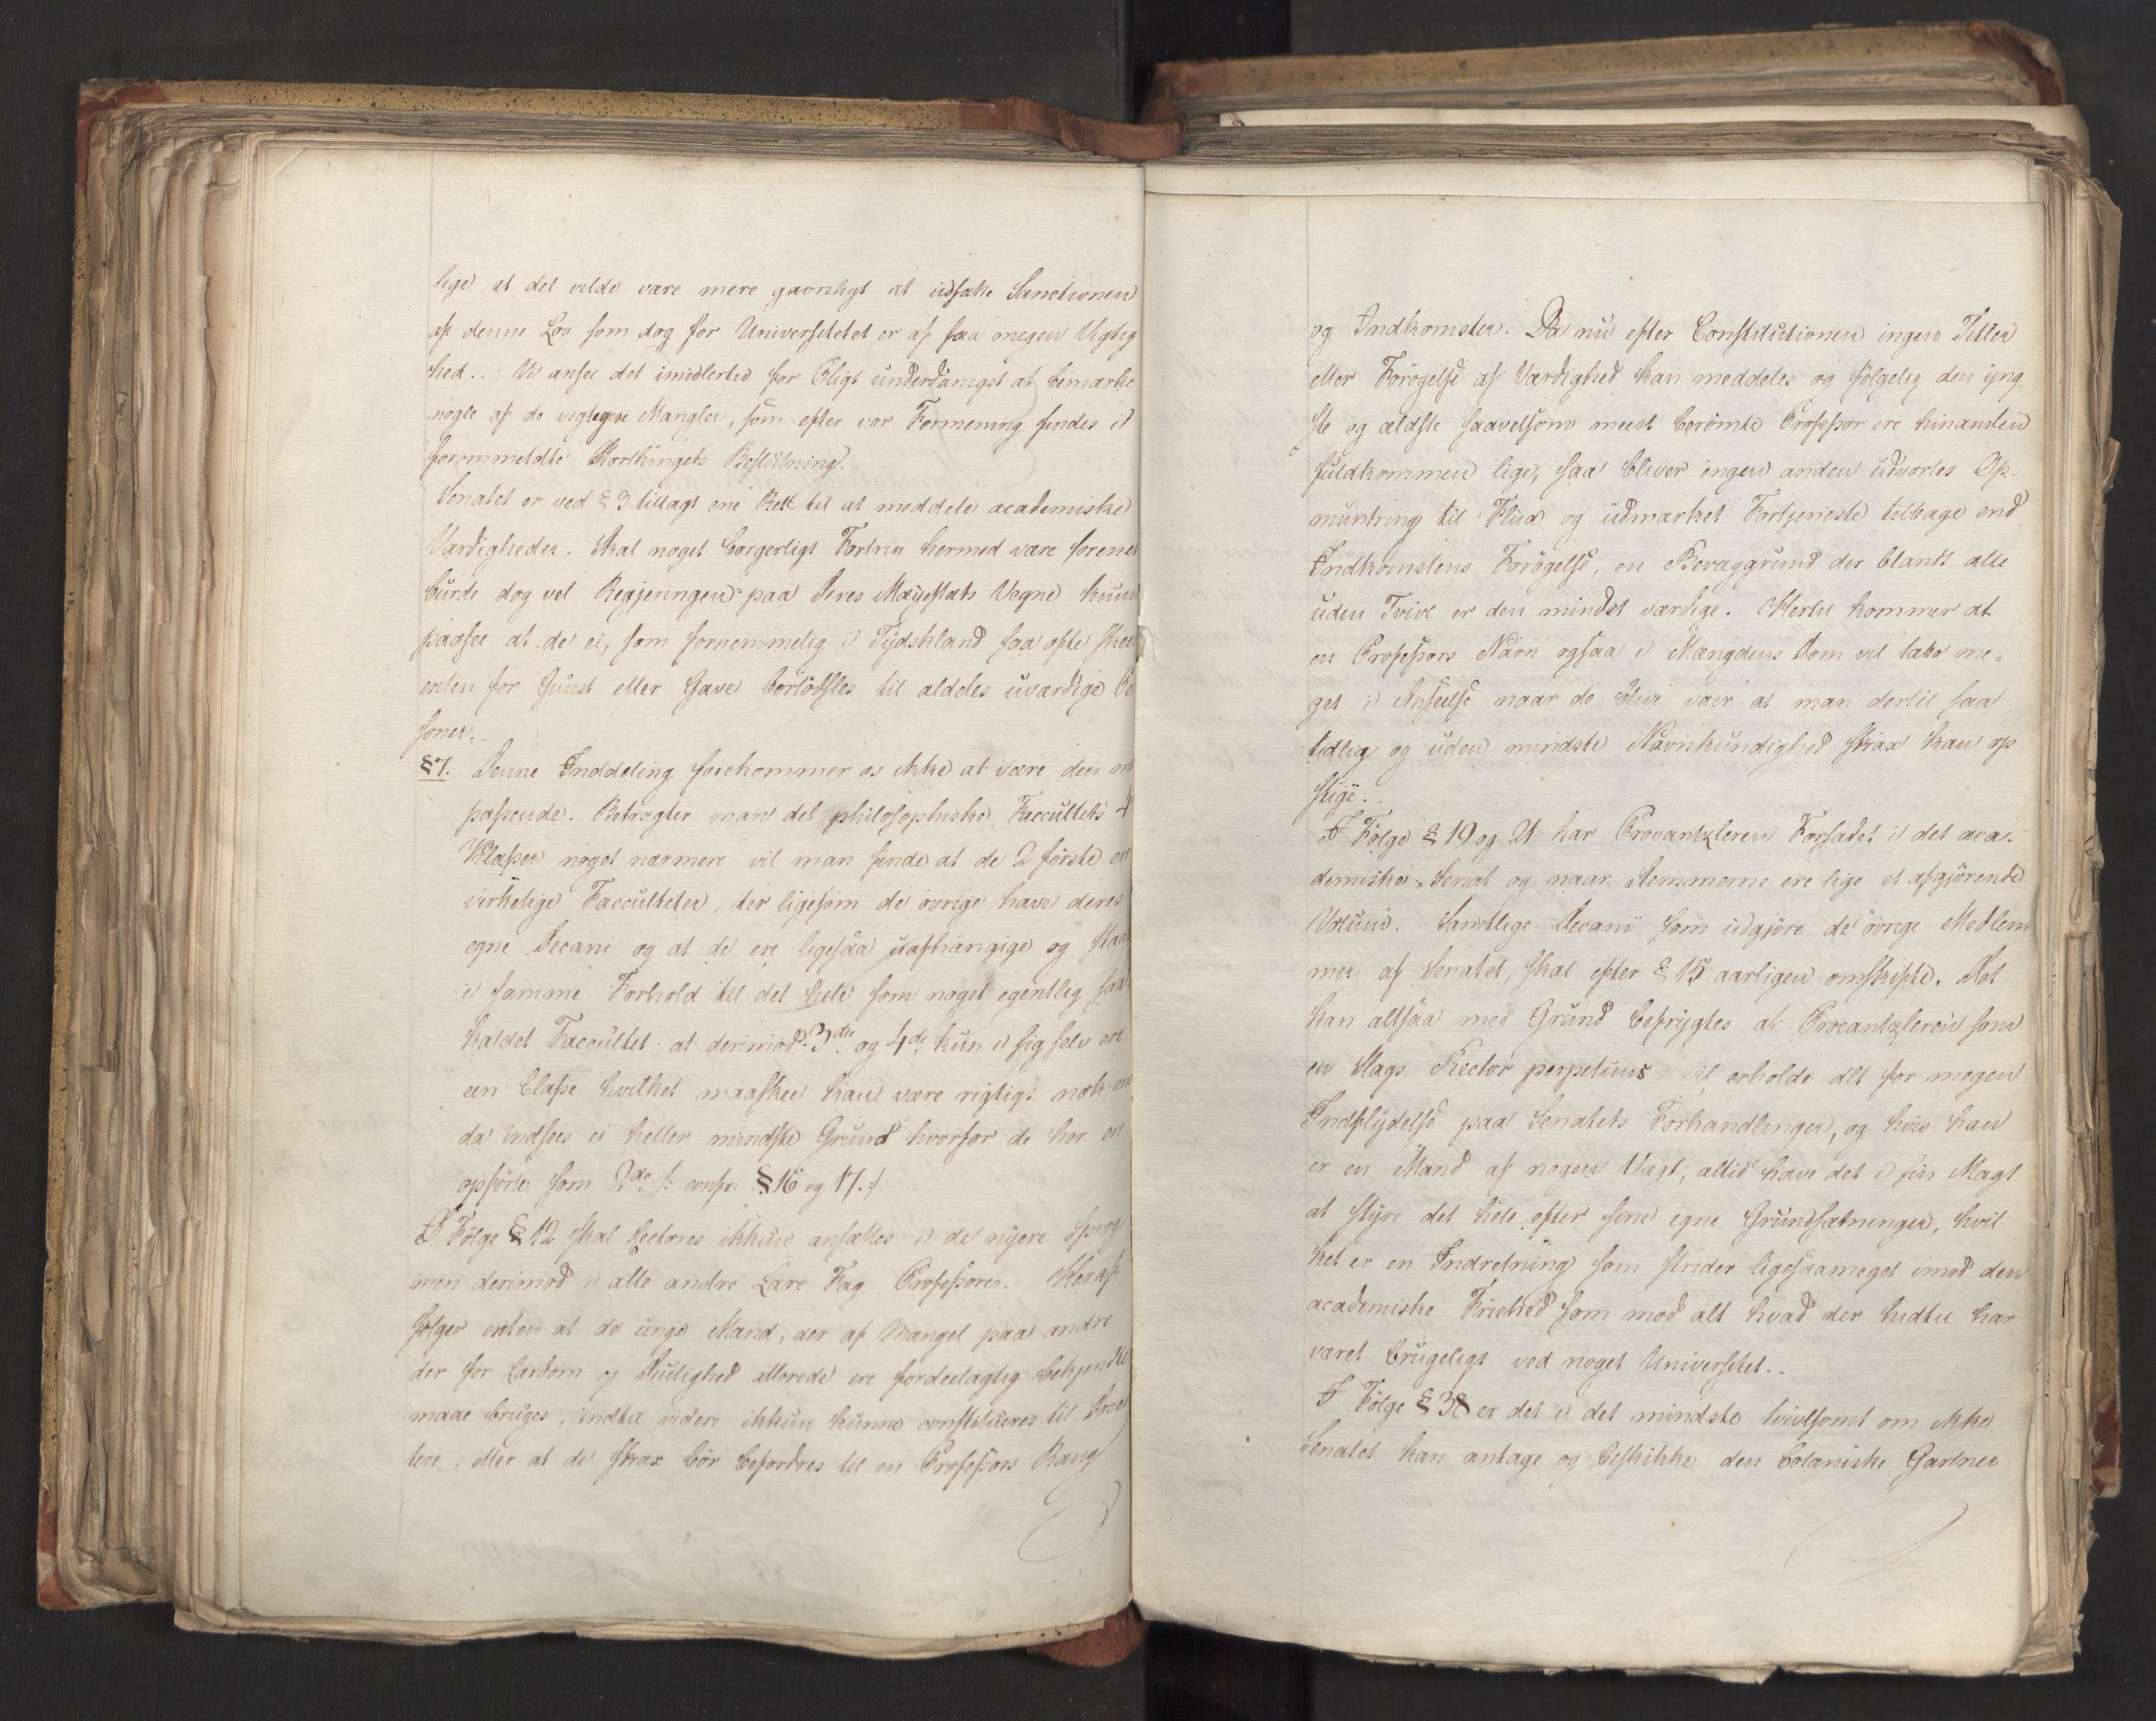 lige at det vilde være mere gavnligt at udsætte Sanctionen
af denne Lov som dog for Universitetet er af saa megen Vigtig
hed.. Vi ansee det imidlertid for Pligt underdanigst at bemærke
nogle af de vigtigere Mangler, som efter vor Formening findes i
forommeldte Storthingets Beslutning.
Senatet er ved § 3 tillagt ene Ret til at meddele academiske
Værdigheder. Skal noget borgerligt Fortrin hermed være forenet
burde dog vel Regjeringen paa Deres Majestæts Vegne kunne
paasee at de ei, som fornemmelig i Tydskland saa ofte skeer
enten for Gunst eller Gave bortødsles til aldeles uværdige Per
soner..
§ 7. Denne Inddeling forekommer os ikke at være den
passende. Betragter man det philosophiske Facultets 4
Klasser noget nærmere vil man finde at de 2 förste ere
virkelige Faculteter, der ligesom de övrige have deres
egne Decani og at de ere ligesaa uafhængige og staae
i samme Forhold til det hele som noget egentlig saa
kaldet Facultet; at derimod 3die og 4de kun i sig selv ere
een Classe hvilket maaskee kan være rigtigt nok,
da indsees ei heller mindste Grund hvorfor de her ere
opförte som 2de /: confr: § 16 og 17.:/
I Fölge § 12 skal Lectores ikkun ansættes i de nyere Sprog
men derimod i alle andre Lære Fag Professorer. Heraf
fölger enten at de unge Mænd, der af Mangel paa andre
der for Lærdom og Duelighed allerede ere fordeelagtig bekjendte
maae bruges, indtil videre ikkun kunne constitueres til Do
tere, eller at de strax bör befordres til en Professors Rang
og Indkomster. Da nu efter Constitutionen ingen Titler
eller Forögelse af Værdighed kan meddeles og fölgelig den yng
ste og ældste saavelsom meest berömte Professor ere hinanden
fuldkommen lige, saa bliver ingen anden udvortes Op-
muntring til Fliid og udmærket Fortjeneste tilbage end
Indkomstens Forögelse, en Bevæggrund der blandt alle
uden Tvivl er den mindst værdige. Hertil kommer at
en Professors Navn ogsaa i Mængdens Dom vil tabe me=
get i Anseelse naar de blive vaer at man dertil saa
tidlig og uden mindste Navnkundighed strax kan op
stige..
I Fölge § 19 og 21 har Procantzleren Forsædet i det aca-
demiske Senat og naar Stemmerne ere lige et afgjörende
Votum. Samtlige Decani som udgjöre de övrige Medlem
mer af Senatet, skal efter § 15 aarligen omskifte. Det
kan altsaa med Grund befrygtes at Procantzleren som
en Slags Rector perpetuus vil erholde alt for megen
Indflydelse paa Senatets Forhandlinger, og hvis han
er en Mand af nogen Vægt, altid have det i sin Magt
at styre det hele efter sine egne Grundsætninger, hvil
ket er en Indretning som strider ligesaameget imod den
academiske Friehed som mod alt hvad der hidtil har
været brugeligt ved noget Universitet..
I Fölge § 38 er det i det mindste tvivlsomt om ikke
Senatet kan antage og beskikke den botaniske Gartner